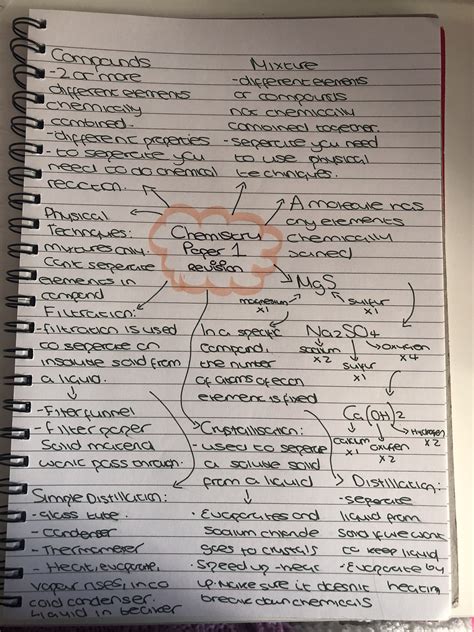 Compounds
-2 or more
different elements
chemically
combined.
-different properties
- to seperate you
need to do chemical
reaction.
Mixture
-different elements
or compounds
not chemically
combined together.
-seperate you need
to use physical
techniques.
Chemistry
Paper 1
revision
A molecule has
any elements
chemically
joined
MgS
magnesium
x1
sulfur
x1
Na2SO4
sodium
x2
sulfur
x1
oxygen
x4
Ca(OH)2
calcium
x1
oxygen
x2
Hydrogen
x2
Physical
Techniques:
mixtures only.
Cant seperate
elements in
compond
Filtration:
-filtration is used
to seperate an
insoluble solid from
a liquid.
-Filter funnel
- filter paper
Solid material
wonit pass through.
In a specific
Compound,
the number
of atoms of each
element is fixed
Crystallisation:
- used to seperate
a soluble solid
from a liquid
- Evaporates and
sodium chloride
goes to crystals
- Speed up -heat
up. Make sure it doesnit
break down chemicals
Simple Distillation:
- Glass tube.
- condenser
- Thermometer
- Heat, evaporate,
vapour rises, into
cold condenser.
Liquid in beaker
Distillation:
- seperate
liquid from
solid if we want
to keep liquid
- Evaporate by
heating